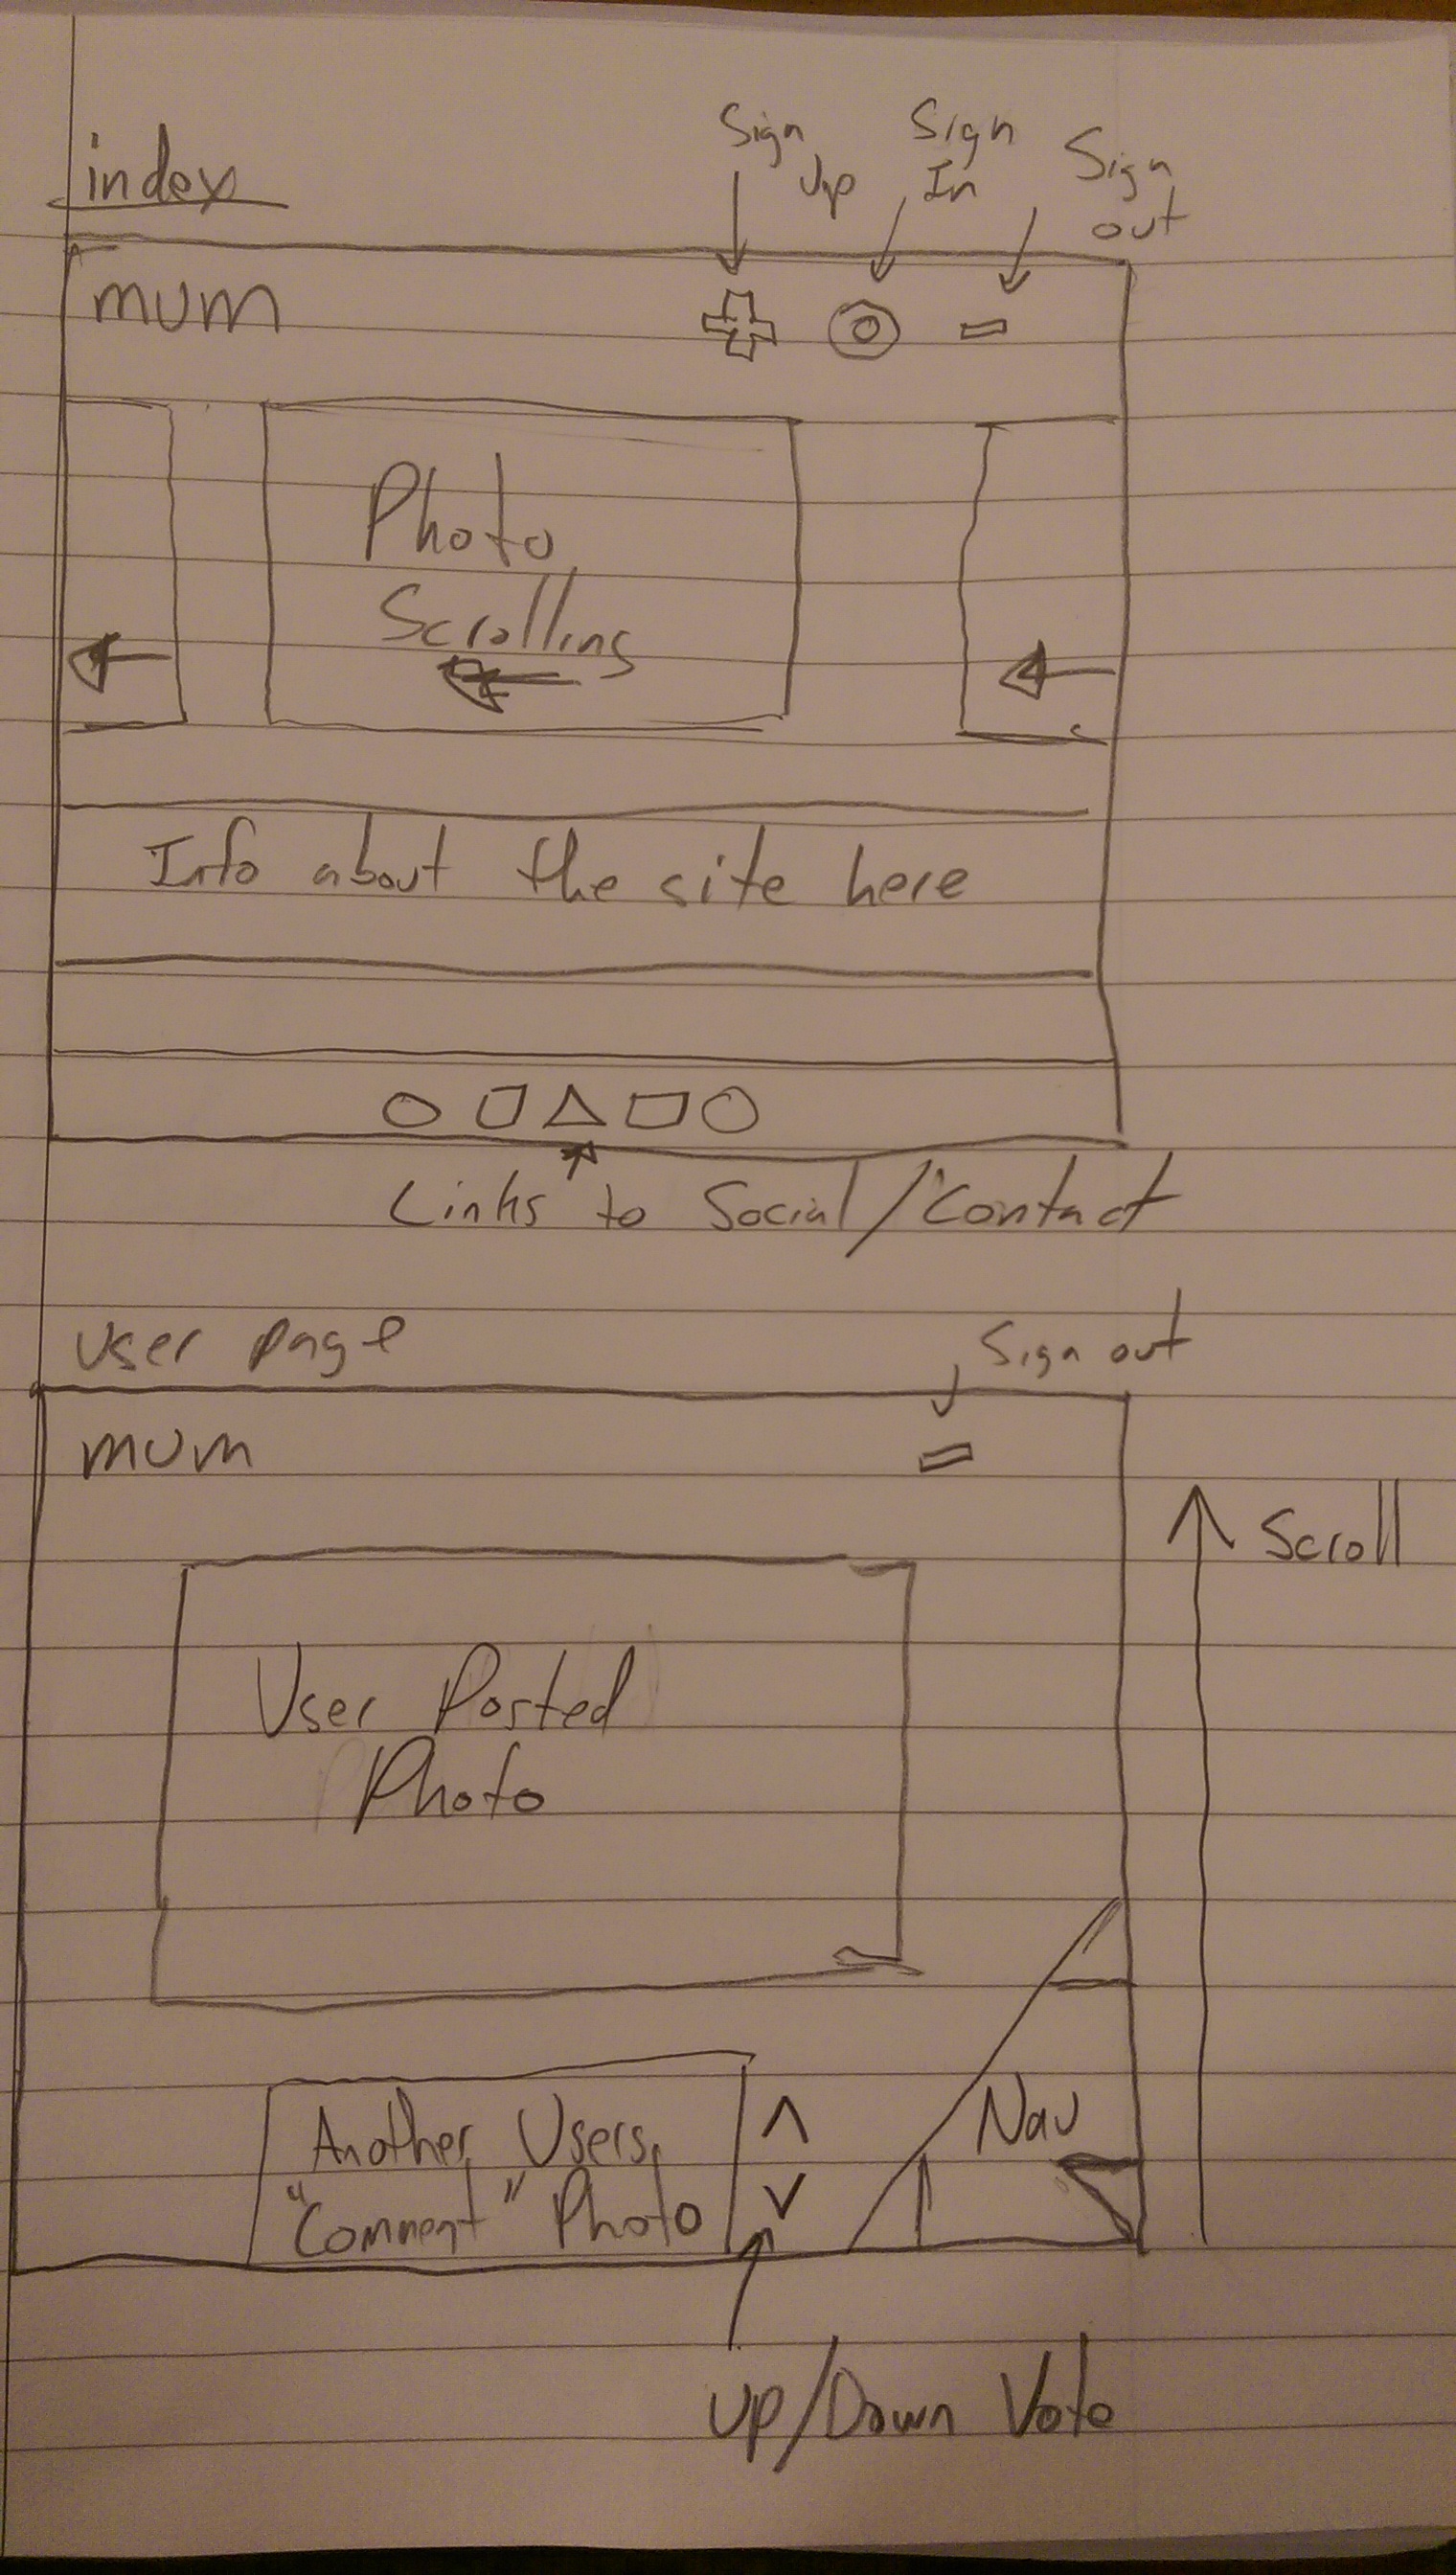 index
Sign Up
Sign In
Sign out
mum
Photo
Scrolling
Info about the site here
Links to Social/Contact
User page
Sign out
mum
Scroll
User Posted
Photo
Nav
Another Users
"Comment" Photo
Up/Down Vote